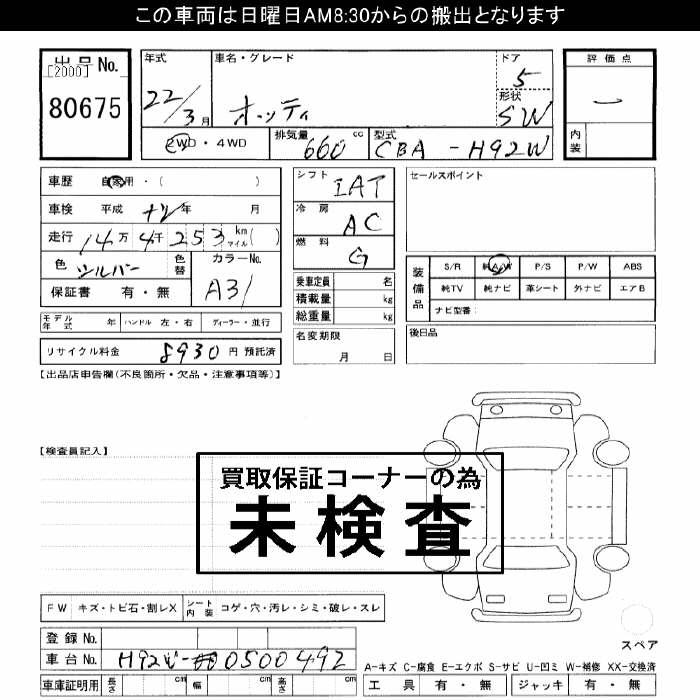 この車両は日曜日AM8:30からの搬出となります
出品No.
[2000]
80675
年式
22/3月
車名・グレード
オッティ
ドア
5
形状
SW
評価点
ー
内装
2WD・4WD
排気量 660 cc
型式 CBA-H92W
車歴 自家用・( )
車検 平成 ナシ年 月
走行 14万 4千 253 km マイル( )
色 シルバー
色替
カラーNo.
A31
保証書 有・無
シフト IAT
冷房 AC
燃料 G
乗車定員 名
積載量 kg
総重量 kg
名変期限
月 日
セールスポイント
装備品
S/R 純A/W P/S P/W ABS
純TV 純ナビ 革シート 外ナビ エアB
ナビ型番:
後日品
モデル年式 年 ハンドル 左・右 ディーラー・並行
リサイクル料金 8930 円 預託済
【出品店申告欄(不良箇所・欠品・注意事項等)】
【検査員記入】
買取保証コーナーの為
未検査
FW キズ・トビ石・割レX シート内装 コゲ・穴・汚レ・シミ・破レ・スレ
スペア
登録No.
車台No. H92W-0500492
車庫証明用 長さ 幅 高さ
A-キズ C-腐食 E-エクボ S-サビ U-凹ミ W-補修 XX-交換済
工具 有・無 ジャッキ 有・無